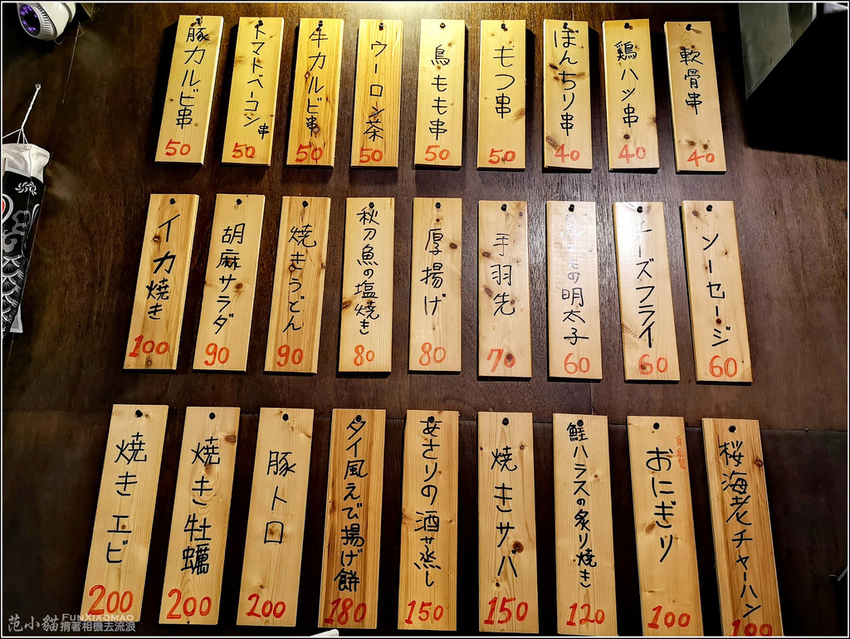 豚カルビ串
50
トマトベーコン串
50
牛カルビ串
50
ウーロン茶
50
鳥もも串
50
もつ串
50
ぼんちり串
40
鶏ハツ串
40
軟骨串
40
イカ焼き
100
胡麻サラダ
90
焼きうどん
90
秋刀魚の塩焼き
80
厚揚げ
80
手羽先
70
の明太子
60
チーズフライ
60
ソーセージ
60
焼きエビ
200
焼き牡蠣
200
豚トロ
200
タイ風えび揚げ餅
180
あさりの酒サ蒸し
150
焼きサバ
150
鮭ハラスの炙り焼き
120
おにぎり
100
桜海老チャーハン
100
范小貓 FUNXIAOMAO
揹著相機去流浪